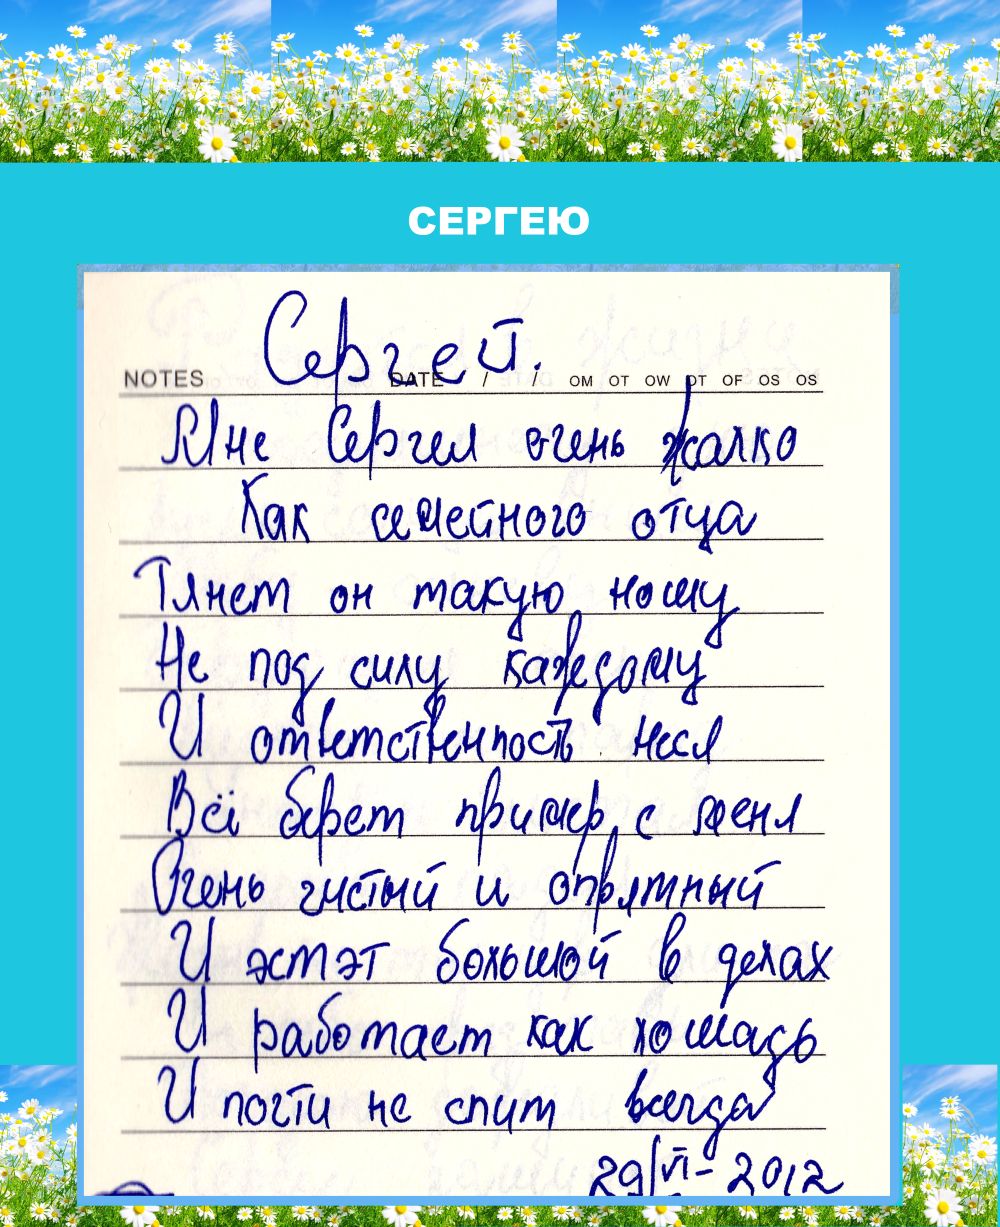 СЕРГЕЮ
Сергей.
NOTES DATE / / ОМ ОТ OW ОТ OF OS OS
Мне Сергея очень жалко
Как семейного отца
Тянет он такую ношу
Не под силу каждому
И ответственность неся
Всё берет пример с меня
Очень чистый и опрятный
И эстэт большой в делах
И работает как лошадь
И почти не спит всегда
29/VI-2012